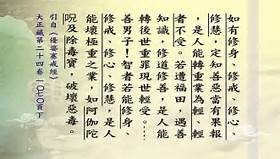 如有修身、修戒、修心、
修慧，定知善惡當有果報
，是人能轉重業為輕、輕
者不受。若遭福田，遇善
知識，修道修善，是人能
轉後世重罪現世輕受。……
善男子！智者若能修身、
修戒、修心、修慧，是人
能壞極重之業，如阿伽陀
呪及除毒寶，破壞惡毒。
引自《優婆塞戒經》
大正藏第二十四卷一〇七〇頁下